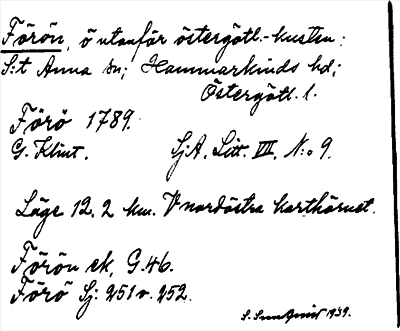 Förön, ö utanför östergötl.-kusten:
S:t Anna sn; Hammarkinds hd;
Östergötl. l.
Förö 1789.
G. Klint. SjA. Litt. VII, N:o 9.
Läge 12,2 km. V nordöstra karthörnet.
Förön ek, G.46.
Förö Sj: 251 v. 252.
S. 1939.